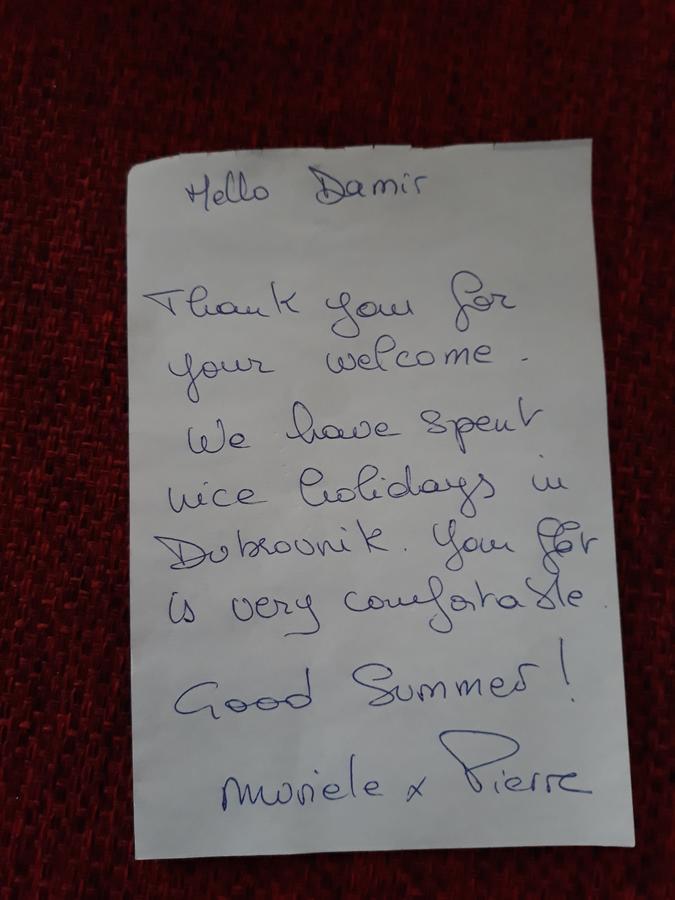 Hello Damir
Thank you for
your welcome.
We have spent
nice holidays in
Dubrovnik. You
is very comfortable
Good Summer!
Muriele x Pierre